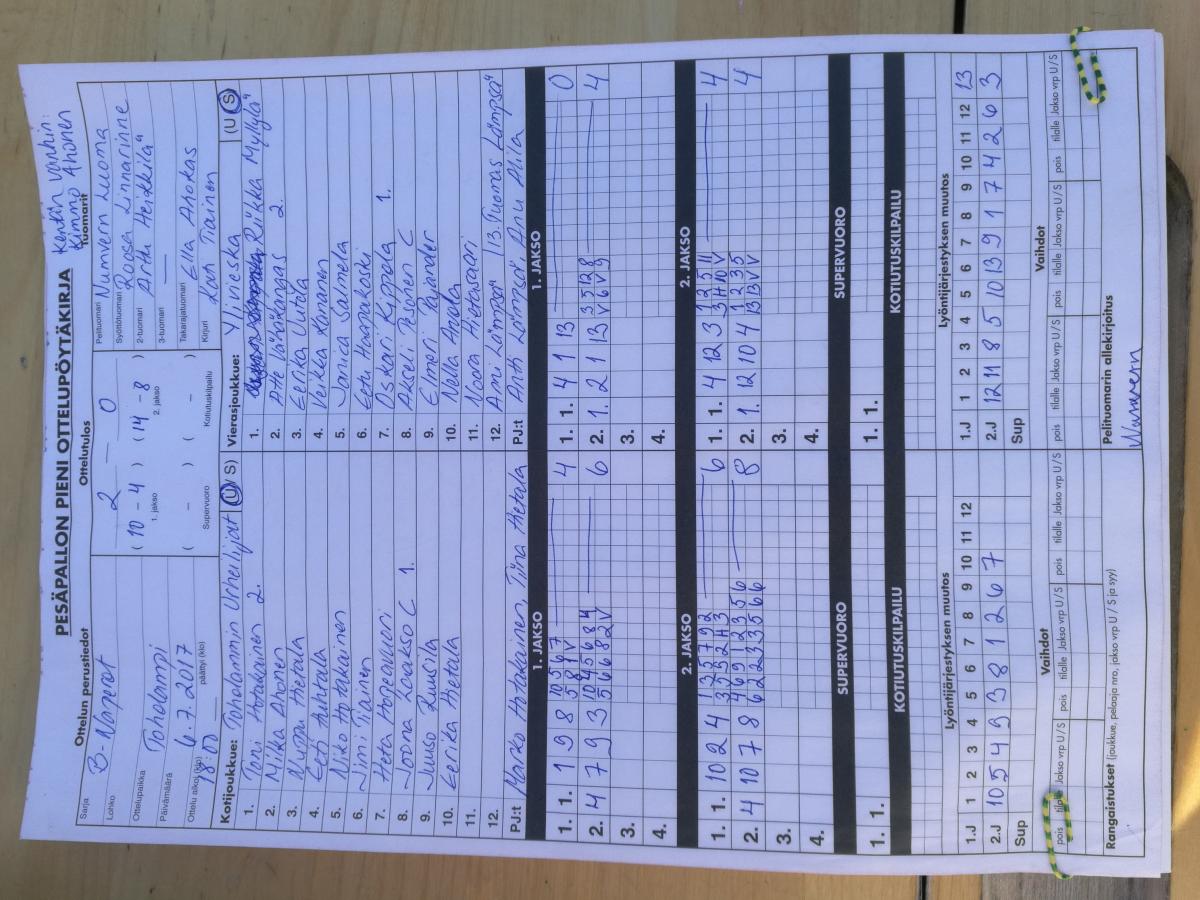 PESÄPALLON PIENI OTTELUPÖYTÄKIRJA
Kentän vanhin:
Kimmo Ahonen
Ottelun perustiedot
Ottelutulos
Tuomarit
Sarja B-
Lohko
Ottelupaikka Toholampi
Päivämäärä 6.7.2017
Ottelu alkoi (klo) 18:00 päättyi (klo)
2 – 0
( 10 - 4 ) ( 14 - 8 )
1. jakso 2. jakso
( – ) ( – )
Supervuoro Kotiutuskilpailu
Pelituomari Luoma
Syöttötuomari Roosa Linnarinne
2-tuomari Arttu Heikkilä
3-tuomari —
Takarajatuomari Ella Ahokas
Kirjuri Kati Tiainen
Kotijoukkue: Toholammin Urheilijat (U S)
1. Toni Hotakainen 2.
2. Milka Ahonen
3. Nuppu Hietala
4. Eeti Auhtala
5. Niko Hotakainen
6. Jimi Tiainen
7. Hetta Honganvieri
8. Joona Laakso C 1.
9. Juuso Luusila
10. Eerika Hietala
11.
12.
PJ:t Marko Hotakainen, Tiina Hietala
Vierasjoukkue: Ylivieska (U S)
1. Riikka Myllylä
2. Atte Lähdekangas 2.
3. Eerika Uutela
4. Veikka Kananen
5. Janica Salmela
6. Eetu Haarakoski
7. Oskari Kippola 1.
8. Akseli Pesonen C
9. Eimori Pajander
10. Nella Anola
11. Noora Hietasaari
12. Ami Lämpsä 13. Tuomas Lämpsä
PJ:t Antti Lämpsä Anu Alila
1. JAKSO
1. 1. 1 9 8 10 5 6 7 4
5 8 1 V
2. 4 7 9 3 10 4 5 6 8 4 6
5 6 6 8 2 V
3.
4.
1. JAKSO
1. 1. 4 1 13 0
2. 1. 2 1 13 3 5 12 8 4
V 6 V 9
3.
4.
2. JAKSO
1. 1. 10 2 4 1 3 5 7 9 2 6
3 5 5 2 H 3
2. 4 10 7 8 4 6 9 1 2 3 5 6 8
6 2 2 3 3 5 6 6
3.
4.
2. JAKSO
1. 1. 4 12 3 1 2 5 11 4
3 H 10 V
2. 1. 12 10 4 1 2 3 5 4
13 13 V V
3.
4.
SUPERVUORO
1. 1.
SUPERVUORO
1. 1.
KOTIUTUSKILPAILU
KOTIUTUSKILPAILU
Lyöntijärjestyksen muutos
1.J 1 2 3 4 5 6 7 8 9 10 11 12
2.J 10 5 4 9 3 8 1 2 6 7
Sup
Lyöntijärjestyksen muutos
1.J 1 2 3 4 5 6 7 8 9 10 11 12 13
2.J 12 11 8 5 10 13 9 1 7 4 2 6 3
Sup
Vaihdot
pois tilalle Jakso vrp U / S pois tilalle Jakso vrp U / S pois tilalle Jakso vrp U / S
Vaihdot
pois tilalle Jakso vrp U / S pois tilalle Jakso vrp U / S pois tilalle Jakso vrp U / S
Rangaistukset (joukkue, pelaaja nro, jakso vrp U / S ja syy)
Pelituomarin allekirjoitus